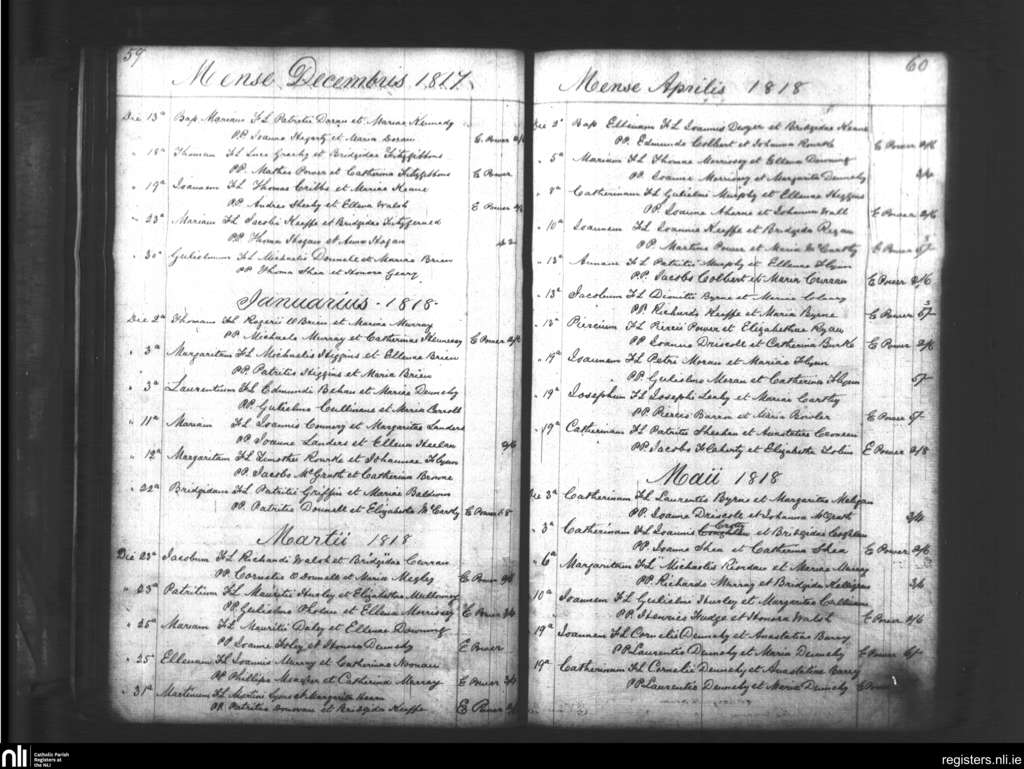 59
Mense Decembris 1817
Die 13ª Bap Mariam FL Patritii Doran et Mariae Kennedy
PP Joanne Hogarty et Maria Doran E. Power
" 18ª Thomam FL Luce Grachy et Bridgidae Fitzgibbons
PP. Matheo Power et Catherina Fitzgibbons E Power
" 19ª Joannem FL Thomae Cribbs et Mariae Keane
PP. Andrea Sheehy et Ellena Walsh E Power
" 23ª Mariam FL Jacobi Keeffe et Bridgidae Fitzgerald
PP. Thoma Hogan et Anna Hogan
" 30ª Gulielmum FL Michaelis Donnell et Mariae Brien
PP Thoma Shea et Honora Geary
Januarius - 1818 -
Die 2ª Thomam FL Rogerii O Brien et Mariae Murray
PP. Michaele Murray et Catherina Hennessy E Power 2/6
" 3ª Margaritam FL Michaelis Higgins et Ellenae Brien
PP. Patritio Higgins et Maria Brien
" 3ª Laurentium FL Edmundi Behan et Mariae Dennehy
PP. Gulielmo Cullinane et Maria Carroll
" 11ª Mariam FL Joannis Connery et Margaritae Landers
PP. Joanne Landers et Ellena Keelan 2/6
" 12ª Margaritam FL Timothei Rourke et Johannae Flynn
PP. Jacobo McGrath et Catherina Browne
" 22ª Bridgidam FL Patritii Griffin et Mariae Baldwin
PP. Patritio Donnell et Elizabetha McCarthy E Power 1.8
Martii 1818
Die 23ª Jacobum FL Richardi Walsh et Bridgidae Curran
PP. Cornelio O Donnell et Maria Megley E Power
" 25ª Patritium FL Mauritii Hurley et Elizabethae Mullowney
PP. Gulielmo Phelan et Ellena Morrissey E Power 3/4
" 25ª Mariam FL Mauritii Daley et Ellenae Downing
PP Joanne Foley et Honora Dennehy E Power
" 25 Ellenam FL Joannis Murray et Catherinae Noonan
PP. Phillippo Meagher et Catherina Murray E Power 3/4
" 31ª Martinum FL Martini Lyons et Margaritae Hearn
PP. Patritio Donovan et Bridgida Keeffe E Power
60
Mense Aprilis 1818
Die 2ª Bap Ellenam FL Joannis Dwyer et Bridgidae Keane
PP. Edmundo Colbert et Johanna Rourke E Power 2/6
" 5ª Mariam FL Thomae Morrissey et Ellenae Downing
PP Joanne Morrissey et Margarita Dennehy 3/4
" 8ª Catherinam FL Gulielmi Murphy et Ellenae Higgins
PP. Joanne Aherne et Johanna Wall E Power 2/6
" 10ª Joannem FL Joannis Keeffe et Bridgidae Regan
PP. Martino Power et Maria McCarthy E Power 5/-
" 13ª Annam FL Patritii Murphy et Ellenae Flynn
PP. Jacobo Colbert et Maria Curran E Power 2/6
" 13ª Jacobum FL Dionitii Byrne et Mariae
PP. Richardo Keeffe et Maria Byrne E Power 5/-
" 15ª Piercium FL Piercii Power et Elizabethae Ryan
PP Joanne Driscole et Catherina Burke E Power 2/6
" 19ª Joannem FL Petri Moran et Mariae Flynn
PP. Gulielmo Moran et Catherina Flynn 5/-
" 19ª Josephum FL Josephi Leahy et Mariae Carthy
PP Piercio Barron et Maria Bowler E Power 5/-
" 19ª Catherinam FL Patritii Sheehan et Anastatiae Croneen
PP. Jacobo Flaherty et Elizabetha Tobin E Power 2/8
Maii 1818
Die 3ª Catherinam FL Laurentii Byrne et Margaritae
PP. Joanne Driscole et Johanna McGrath 3/4
" 3ª Catherinam FL Joannis Carty et Bridgidae
PP. Joanne Shea et Catherina Shea E Power 2/6
" 6ª Margaritam FL Michaelis Riordan et Mariae Murray
PP. Richardo Murray et Bridgida 3/4
10ª Joannem FL Gulielmi Hurley et Margaritae
PP. Henrico Fudge et Honora Walsh E Power 2/6
19ª Joannem FL Cornelii Dennehy et Anastatiae Barry
PP Laurentio Dennehy et Maria Dennehy E Power
19ª Catherinam FL Cornelii Dennehy et Anastatiae Barry
PP Laurentio Dennehy et Maria Dennehy E Power
nli
Catholic Parish
Registers at
the NLI
registers.nli.ie